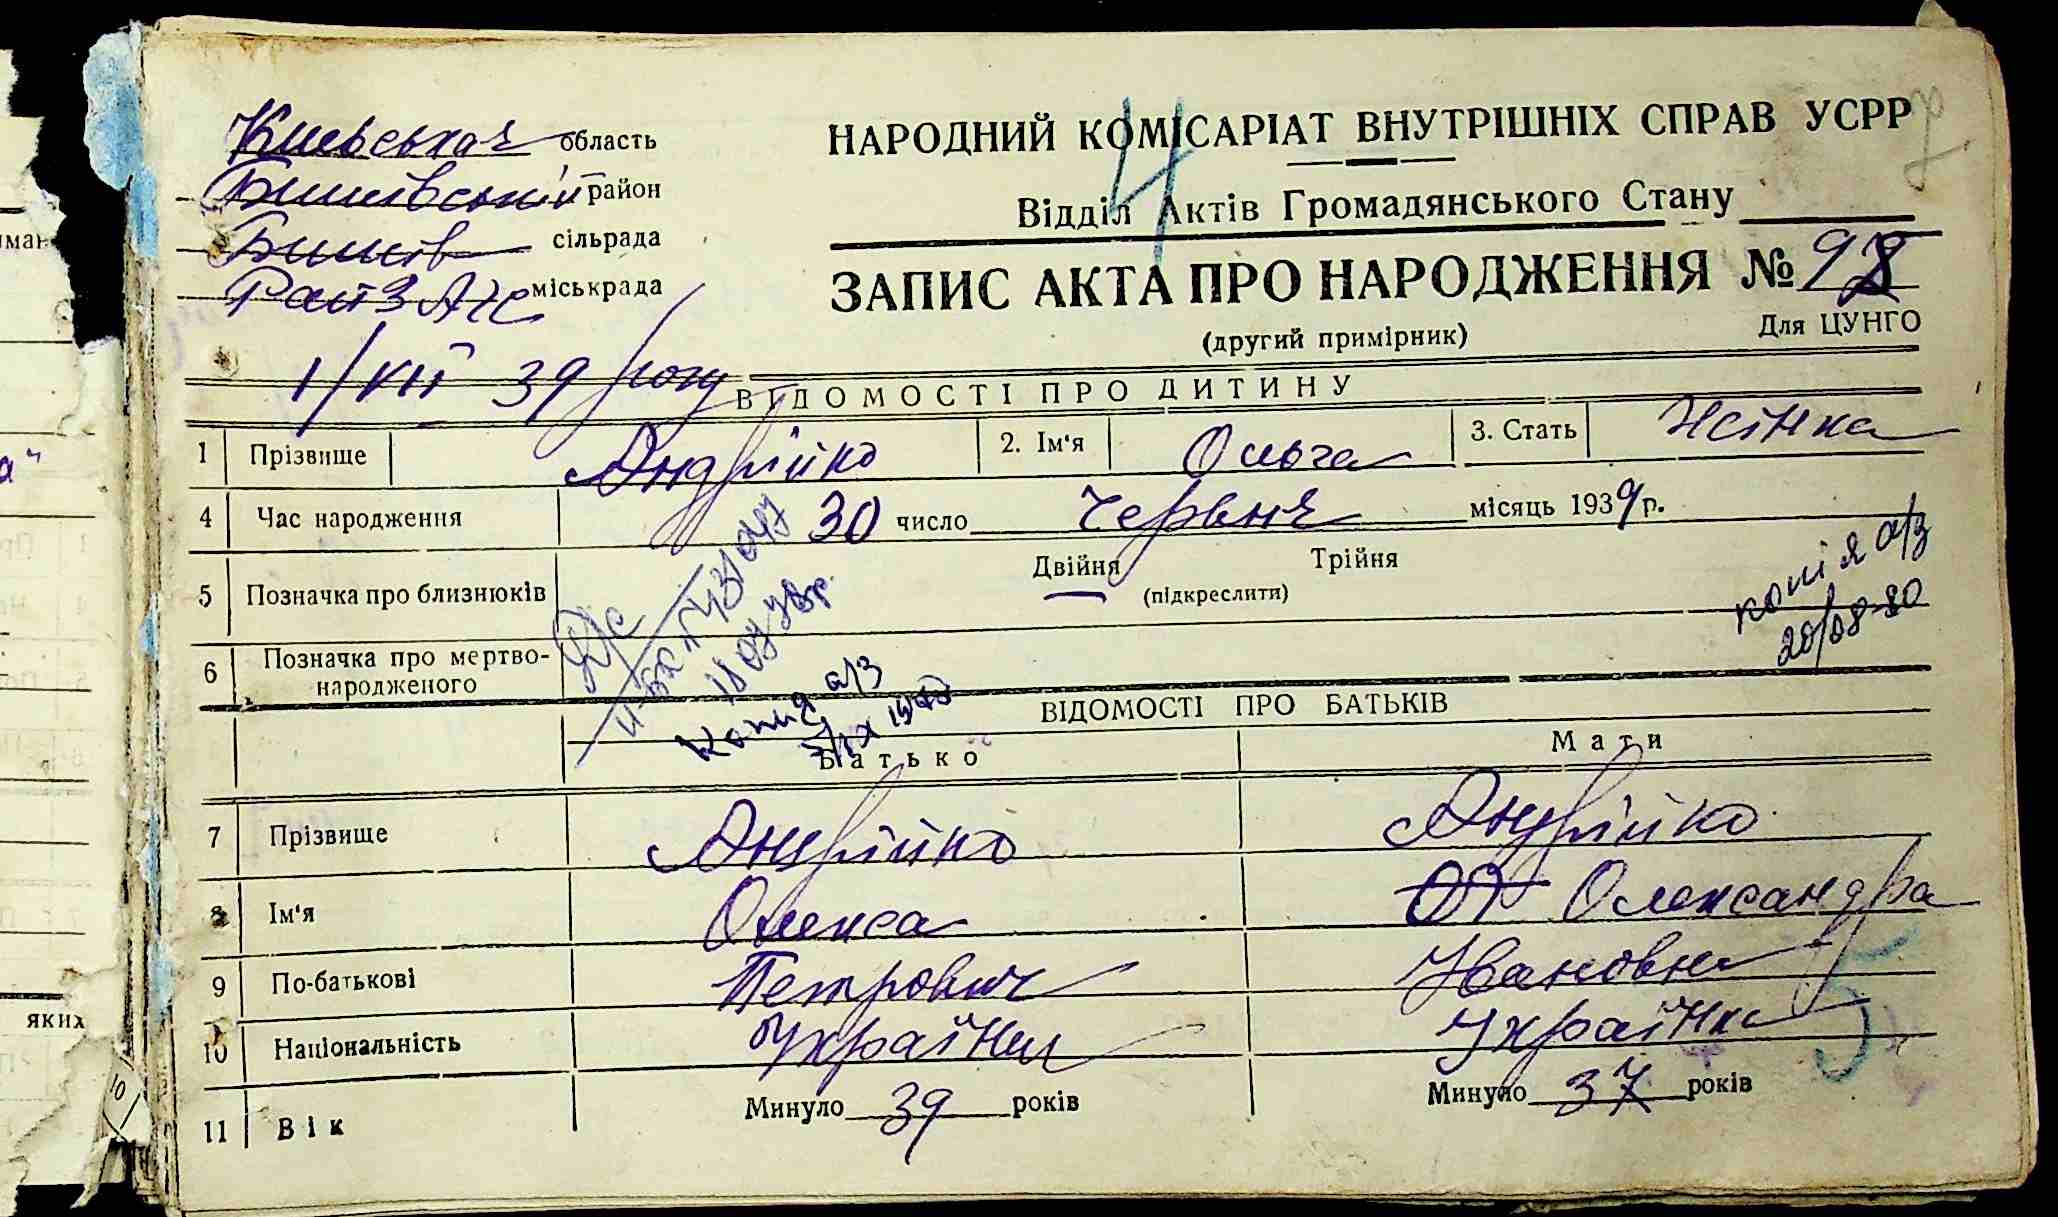 Киевська область
Бишівський район
Бишів сільрада
РайЗАГС міськрада
НАРОДНИЙ КОМІСАРІАТ ВНУТРІШНІХ СПРАВ УСРР
Відділ Актів Громадянського Стану
ЗАПИС АКТА ПРО НАРОДЖЕННЯ № 98
(другий примірник)
Для ЦУНГО
1/VII 39 року
ВІДОМОСТІ ПРО ДИТИНУ
1 Прізвище Андрійко 2. Ім'я Ольга 3. Стать Жінка
4 Час народження 30 число Червня місяць 1939 р.
5 Позначка про близнюків Двійня Трійня
(підкреслити)
копія а/з
20/08-80
6 Позначка про мертво-
народженого
Копия а/з
ВІДОМОСТІ ПРО БАТЬКІВ
Батько Мати
7 Прізвище Андрійко Андрійко
8 Ім'я Олекса Олександра
9 По-батькові Петрович Ивановна
10 Національність Українец Українка
11 Вік Минуло 39 років Минуло 37 років
яких
10